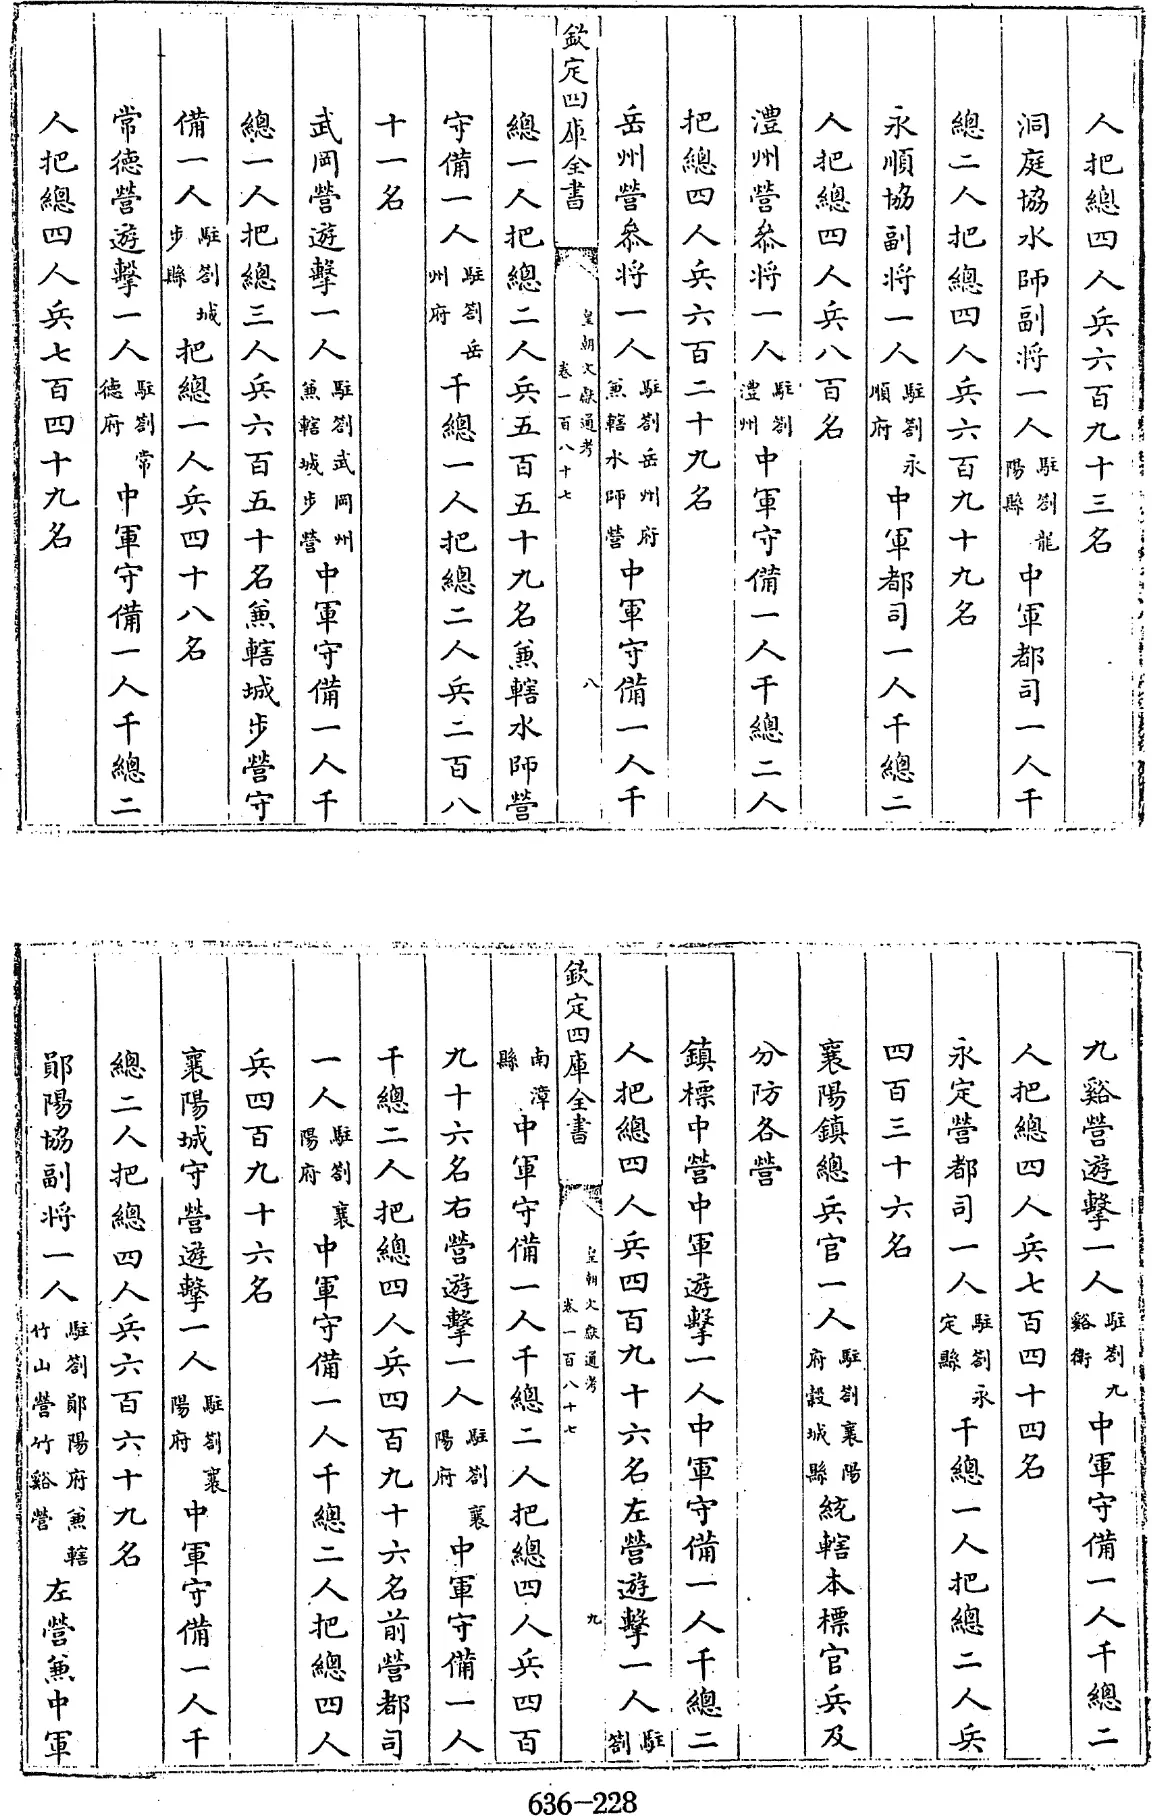 人把總四人兵六百九十三名
洞庭協水師副將一人駐劄龍陽縣中軍都司一人千
總二人把總四人兵六百九十九名
永順協副將一人駐劄永順府中軍都司一人千總二
人把總四人兵八百名
澧州營叅將一人駐劄澧州中軍守備一人千總二人
把總四人兵六百二十九名
岳州營叅將一人駐劄岳州府兼轄水師營中軍守備一人千
欽定四庫全書
皇朝文獻通考
卷一百八十七
八
總一人把總二人兵五百五十九名兼轄水師營
守備一人駐劄岳州府千總一人把總二人兵二百八
十一名
武岡營遊擊一人駐劄武岡州兼轄城步營中軍守備一人千
總一人把總三人兵六百五十名兼轄城步營守
備一人駐劄城步縣把總一人兵四十八名
常德營遊擊一人駐劄常德府中軍守備一人千總二
人把總四人兵七百四十九名
九谿營遊擊一人駐劄九谿衛中軍守備一人千總二
人把總四人兵七百四十四名
永定營都司一人駐劄永定縣千總一人把總二人兵
四百三十六名
襄陽鎮總兵官一人駐劄襄陽府穀城縣統轄本標官兵及
分防各營
鎮標中營中軍遊擊一人中軍守備一人千總二
人把總四人兵四百九十六名左營遊擊一人駐劄
欽定四庫全書
皇朝文獻通考
卷一百八十七
九
南漳縣中軍守備一人千總二人把總四人兵四百
九十六名右營遊擊一人駐劄襄陽府中軍守備一人
千總二人把總四人兵四百九十六名前營都司
一人駐劄襄陽府中軍守備一人千總二人把總四人
兵四百九十六名
襄陽城守營遊擊一人駐劄襄陽府中軍守備一人千
總二人把總四人兵六百六十九名
鄖陽協副將一人駐劄鄖陽府兼轄竹山營竹谿營左營兼中軍
636-228